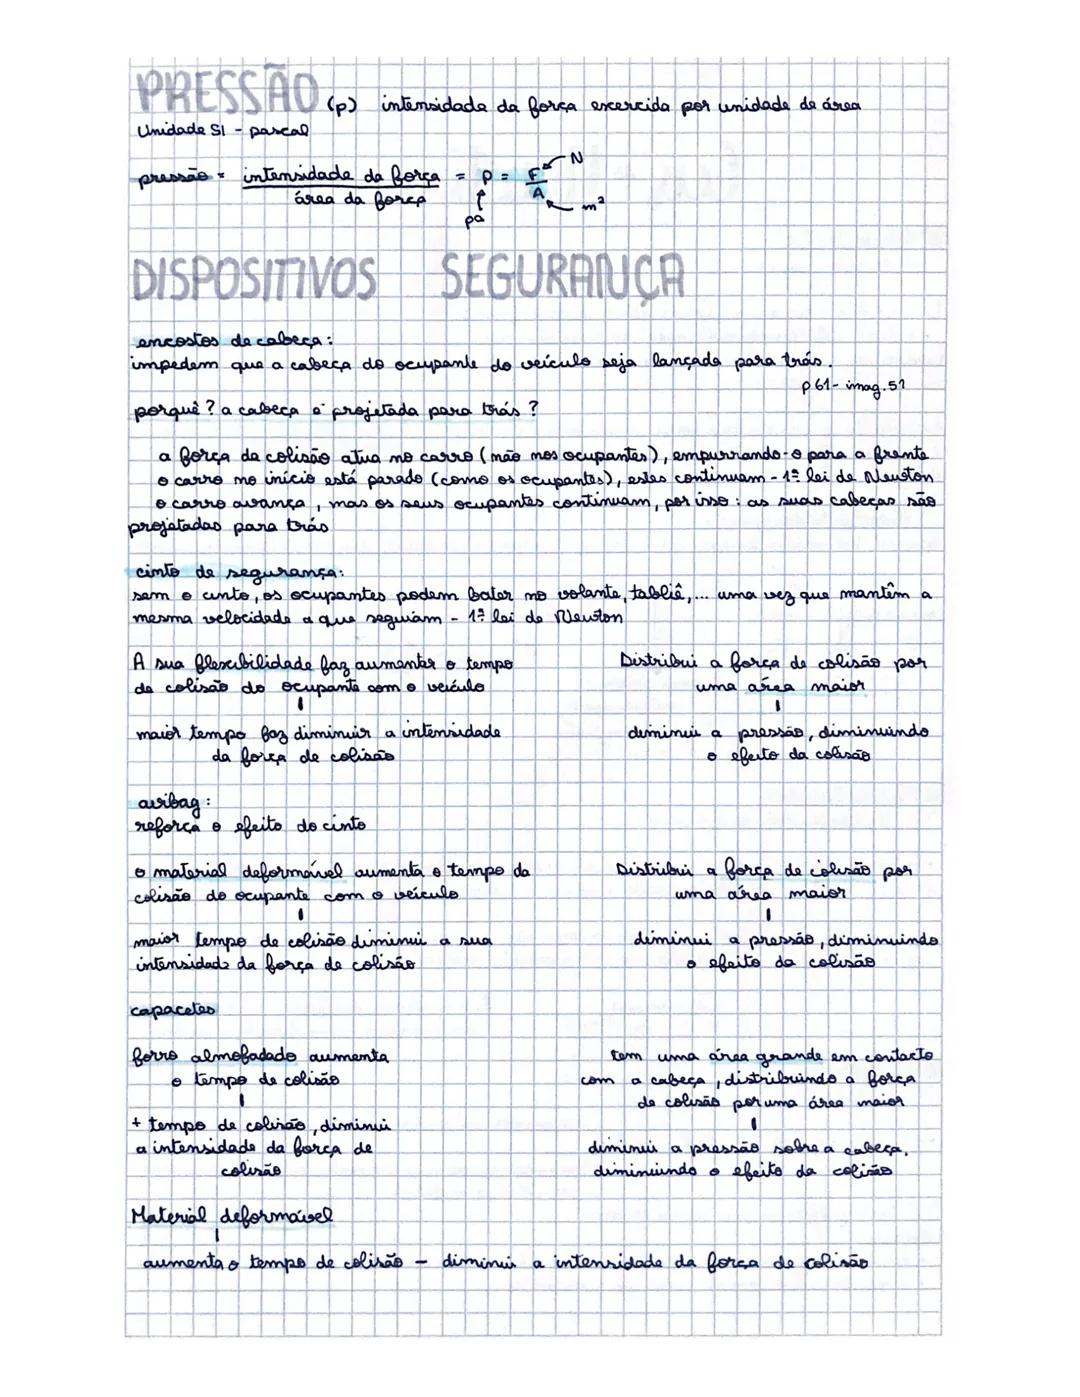 PRESSÃO (p) intensidade da força exercida por unidade de área
Unidade SI - pascal
pressão = intensidade da força / área da força = P = F / A
N
m²
pa
DISPOSITIVOS SEGURANÇA
encostos de cabeça:
impedem que a cabeça do ocupante do veículo seja lançada para trás.
p 61- imag. 51
porquê? a cabeça é projetada para trás?
a força da colisão atua no carro (não nos ocupantes), empurrando-o para a frente
o carro no início está parado (como os ocupantes), estes continuam - 1ª lei de Newton
o carro avança, mas os seus ocupantes continuam, por isso: as suas cabeças são
projetadas para trás
cinto de segurança:
sem o cinto, os ocupantes podem bater no volante, tabliê,... uma vez que mantêm a
mesma velocidade a que seguiam - 1ª lei de Newton
A sua flexibilidade faz aumentar o tempo
de colisão do ocupante com o veículo
maior tempo faz diminuir a intensidade
da força de colisão
Distribui a força de colisão por
uma área maior
diminui a pressão, diminuindo
o efeito da colisão
airbag:
reforça o efeito do cinto
o material deformável aumenta o tempo da
colisão do ocupante com o veículo
maior tempo de colisão diminui a sua
intensidade da força de colisão
Distribui a força de colisão por
uma área maior
diminui a pressão, diminuindo
o efeito da colisão
capacetes
forro almofadado aumenta
o tempo de colisão
+ tempo de colisão, diminui
a intensidade da força de
colisão
tem uma área grande em contacto
com a cabeça, distribuindo a força
de colisão por uma área maior
diminui a pressão sobre a cabeça,
diminuindo o efeito da colisão
Material deformável
aumenta o tempo de colisão - diminui a intensidade da força de colisão